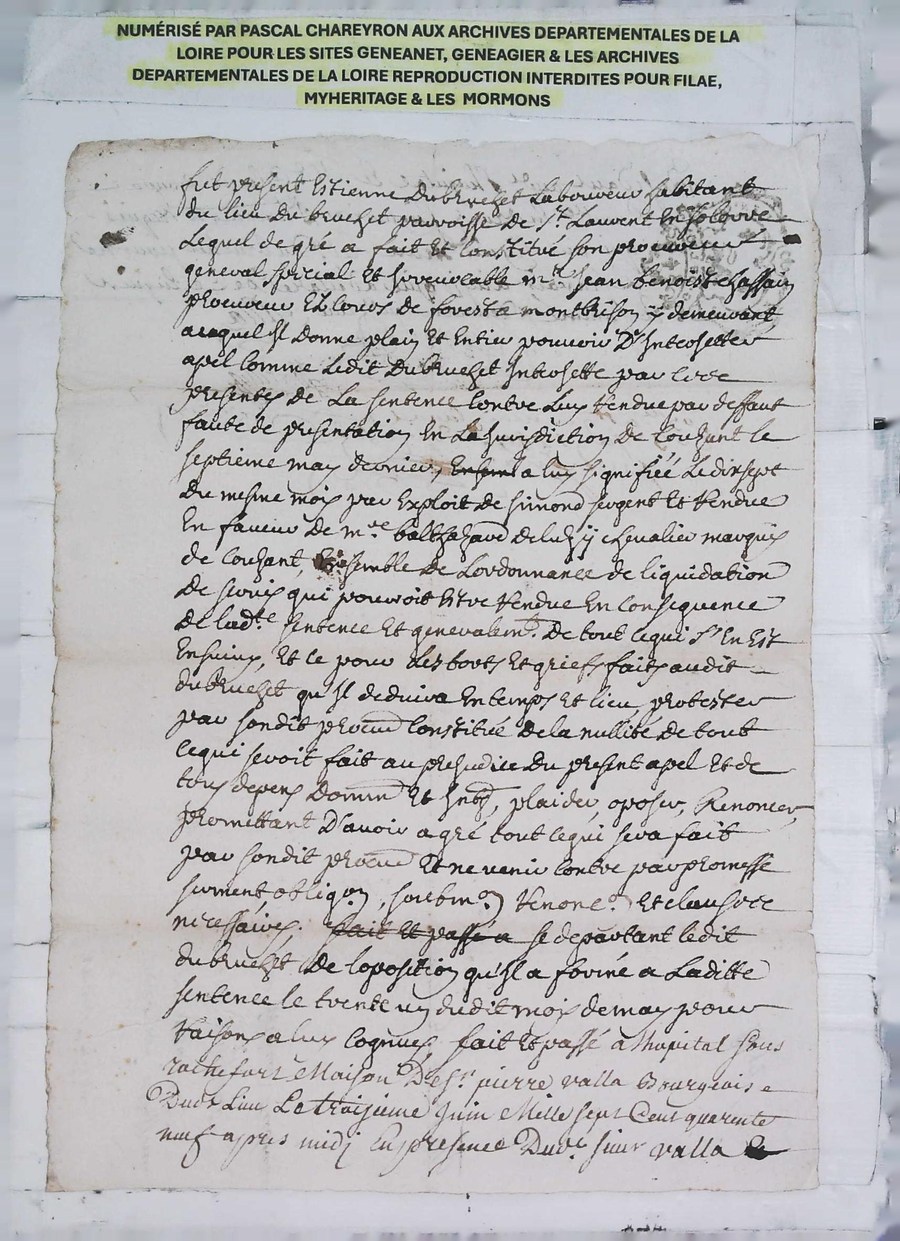 NUMÉRISÉ PAR PASCAL CHAREYRON AUX ARCHIVES DEPARTEMENTALES DE LA
LOIRE POUR LES SITES GENEANET, GENEAGIER & LES ARCHIVES
DEPARTEMENTALES DE LA LOIRE REPRODUCTION INTERDITES POUR FILAE,
MYHERITAGE & LES MORMONS
fut present Estienne Dubruchet Laboureur habitant
du lieu du bruchet parroisse de St. Laurent En Solorre
Lequel de gré a fait Et Constitué son procureur
general special Et Irrevocable me. Jean benoist chassain
procureur Es cours de forest a montbrison y demeurant,
auquel Il donne plain Et Entier pouvoir D'Interjetter
apel Comme Ledit Dubruchet Interjette par Cere
presentes de La sentence Contre Luy Rendue par deffaut
faute de presentation En La Jurisdiction de Couzant le
septieme may dernier, a luy signifiée Le dixsept
du mesme mois par Exploit de simond sergent Et Rendue
En faveur de mre balthazard deluzÿ chevalier marquis
de Couzant, Ensemble de Lordonnance de liquidation
De frais qui pourroit Estre Rendue En Consequence
de ladte sentence Et generalemt. De tout ce qui s'En Est
Ensuivy, Et ce pour Les torts Et griefs faits audit
dubruchet qu'Il deduira En temps Et lieu, protester
par sondit procur Constitué de la nullité de tout
ce qui seroit fait au prejudice du present apel Et de
tous depens Domm Et Intts, plaider, oposer, Renoncer,
promettant D'avoir a gré tout ce qui sera fait
par sondit procur Et ne venir Contre par promesse
serment obligon, soubmon Renonc. Et clauseee
necessaires. fait Et passé a se departant ledit
dubruchet De loposition qu'Il a formé a Laditte
sentence le trente un dudit mois de may pour
Raisons a luy Cognues, fait Et passé à lhopital sous
rochefort Maison De sr. pierre valla Bourgeois
Dudt Lieu Le troisieme Juin Mille sept Cent quarente
neuf apres midi En presence Dudt. sieur valla &